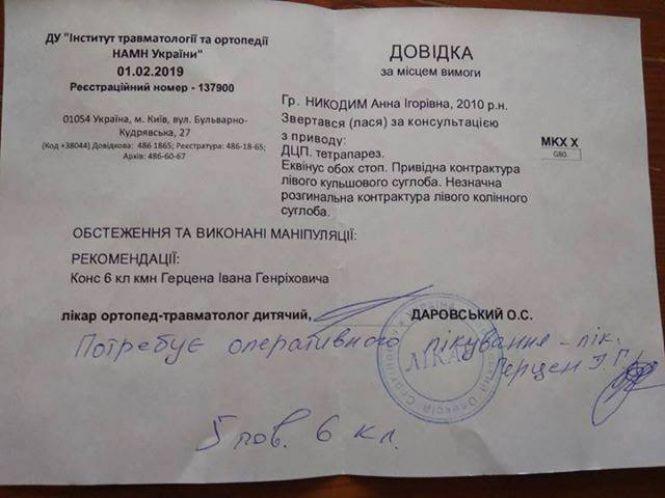 ДУ "Інститут травматології та ортопедії
НАМН України"
01.02.2019
Реєстраційний номер - 137900
01054 Україна, м. Київ, вул. Бульварно-
Кудрявська, 27
(Код +38044) Довідкова: 486 1865; Реєстратура: 486-18-65;
Архів: 486-60-67
ДОВІДКА
за місцем вимоги
Гр. НИКОДИМ Анна Ігорівна, 2010 р.н.
Звертався (лася) за консультацією
з приводу:
ДЦП. тетрапарез.
Еквінус обох стоп. Привідна контрактура
лівого кульшового суглоба. Незначна
розгинальна контрактура лівого колінного
суглоба.
МКХ X
G80.
ОБСТЕЖЕННЯ ТА ВИКОНАНІ МАНІПУЛЯЦІЇ:
РЕКОМЕНДАЦІЇ:
Конс 6 кл кмн Герцена Івана Генріховича
лікар ортопед-травматолог дитячий,
ДАРОВСЬКИЙ О.С.
Потребує оперативного лікування - лік.
Герцен І.Г.
5 пов. 6 кл.
ЛІКАР